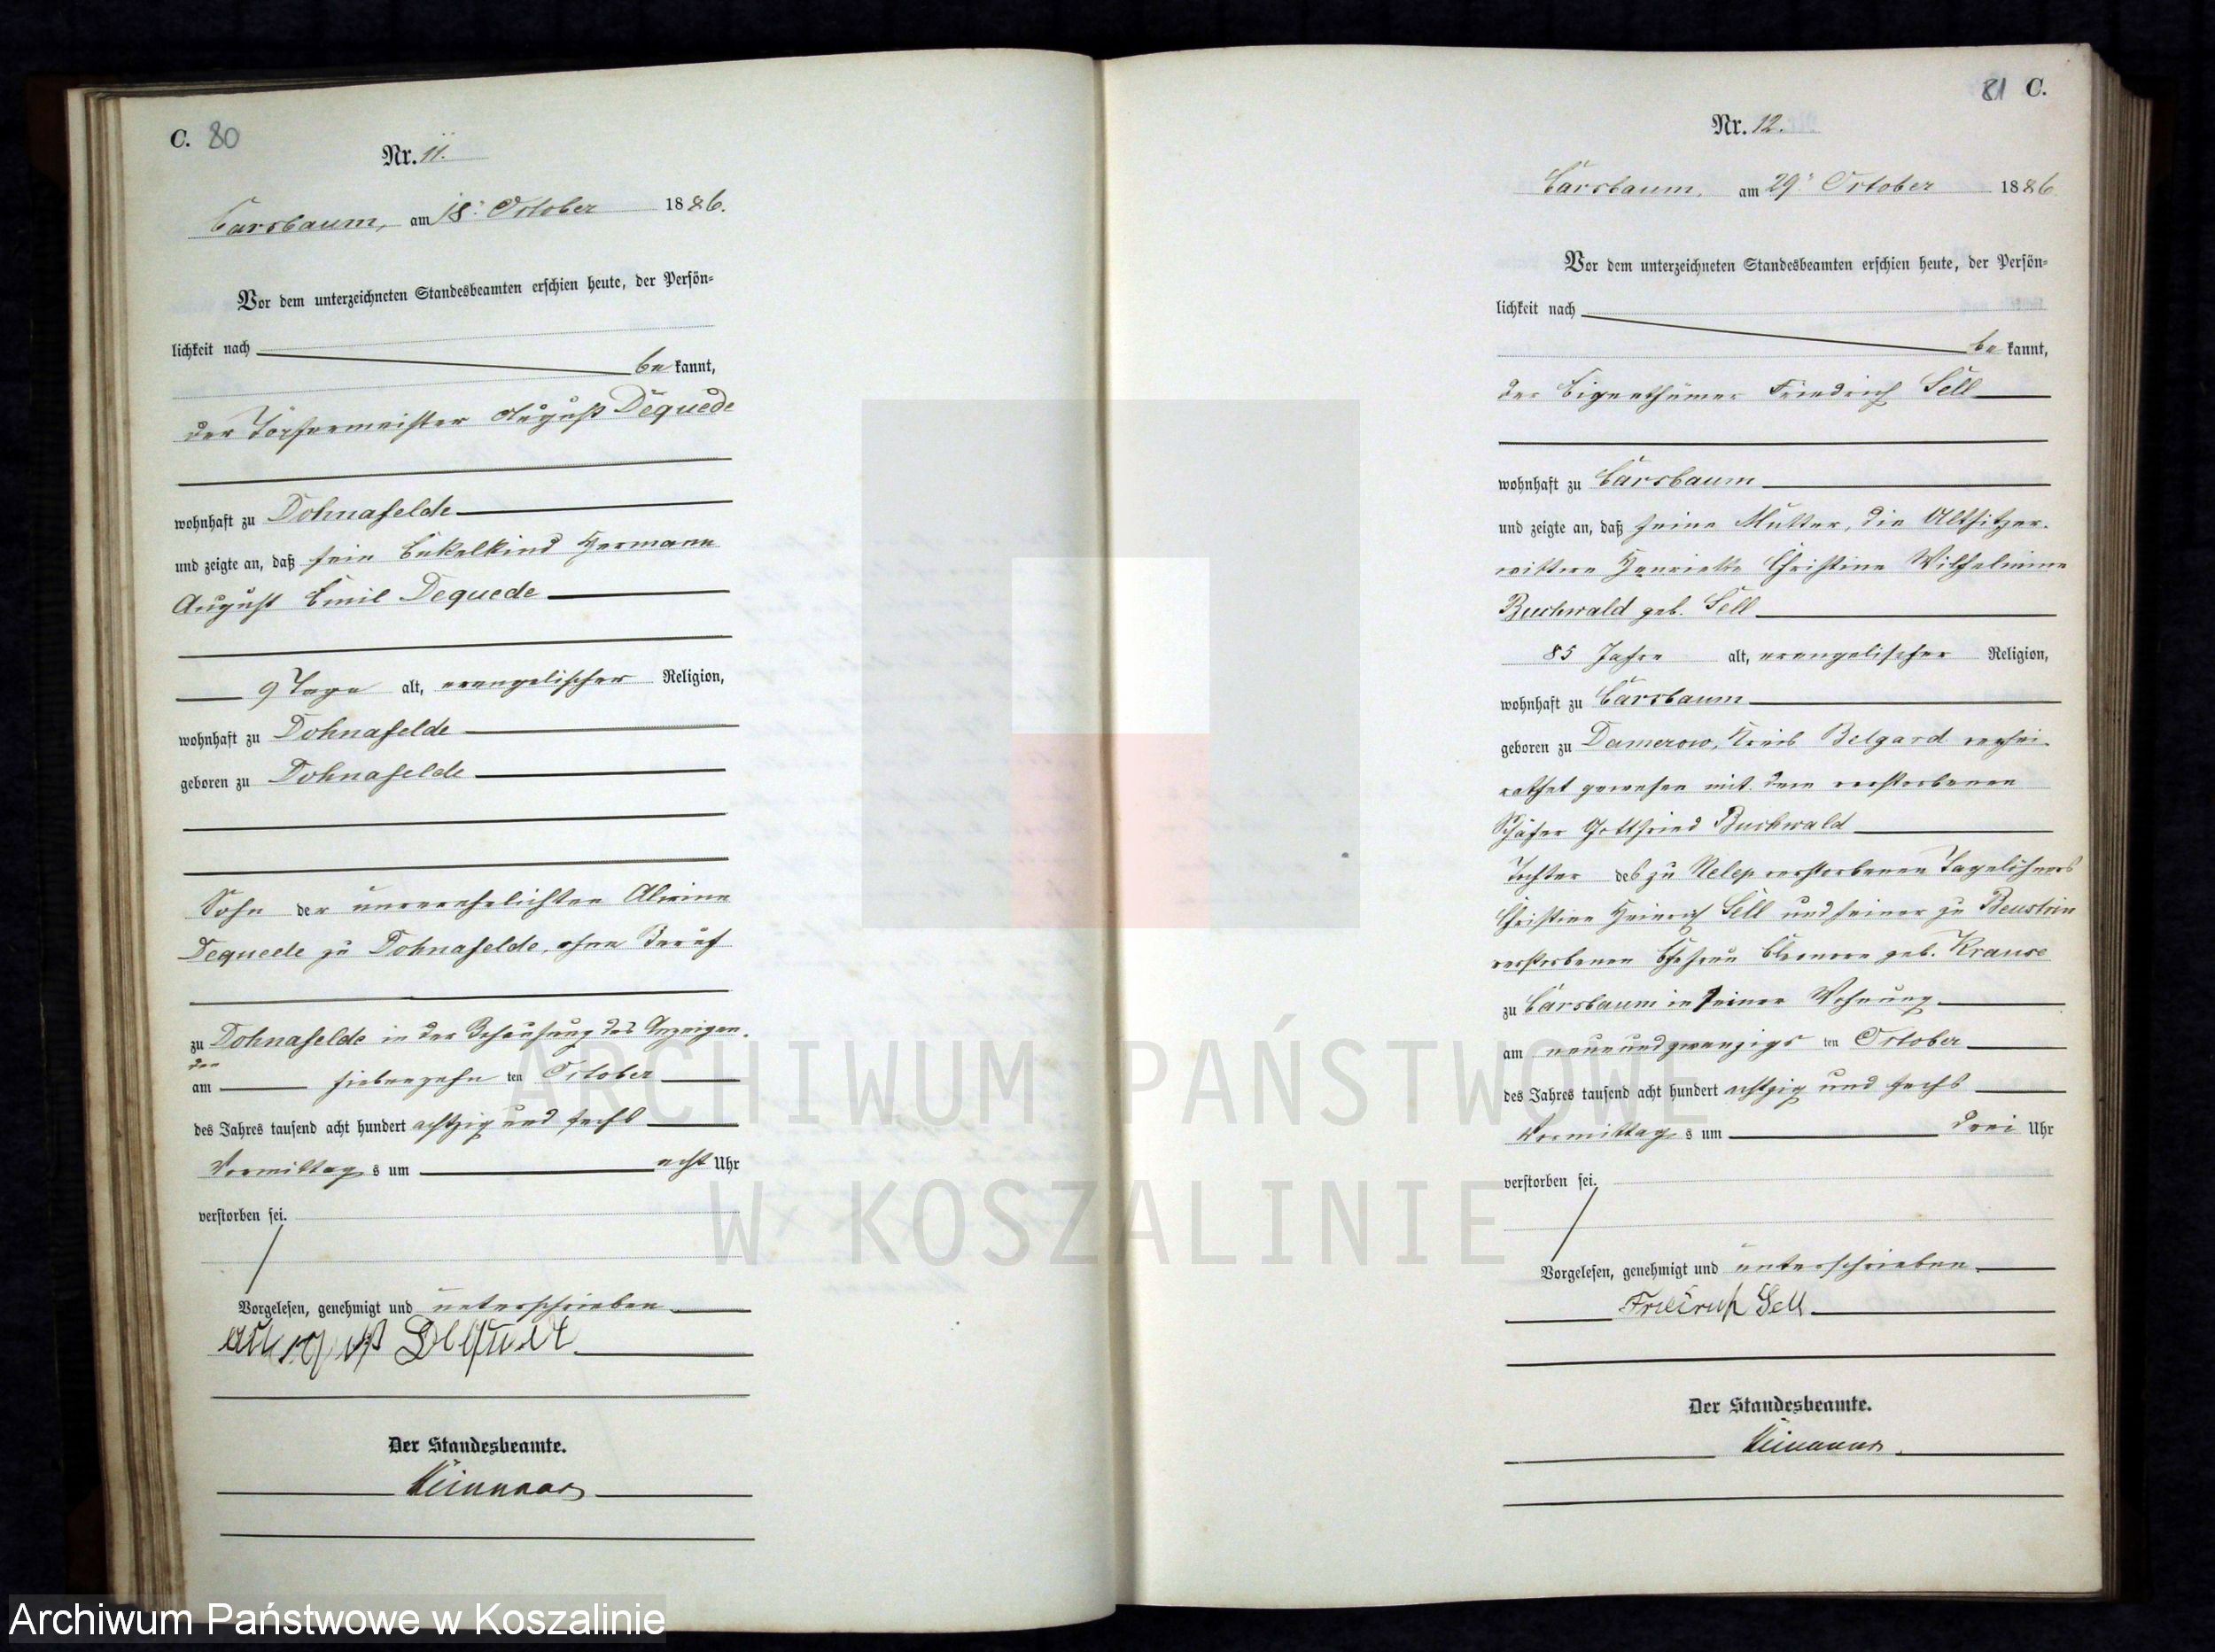 C. 80
Nr. 11.
Carsbaum, am 18. October 1886.
Vor dem unterzeichneten Standesbeamten erschien heute, der Persön-
lichkeit nach
be kannt,
der Töpfermeister August Dequede
wohnhaft zu Dohnafelde
und zeigte an, daß sein Enkelkind Hermann
August Emil Dequede
9 Tage alt, evangelischer Religion,
wohnhaft zu Dohnafelde
geboren zu Dohnafelde
Sohn der unverehelichten Alwine
Dequede zu Dohnafelde, ohne Beruf
zu Dohnafelde in der Behausung des Anzeigen-
den
am siebenzehn ten October
des Jahres tausend acht hundert achtzig und sechs
Vormittag s um acht Uhr
verstorben sei.
Vorgelesen, genehmigt und unterschrieben
August Dequede
Der Standesbeamte.
81 C.
Nr. 12.
Carsbaum, am 29. October 1886
Vor dem unterzeichneten Standesbeamten erschien heute, der Persön-
lichkeit nach
be kannt,
der Eigenthümer Friedrich Sell
wohnhaft zu Carsbaum
und zeigte an, daß seine Mutter, die Altsitzer-
wittwe Henriette Christine Wilhelmine
Buchwald geb. Sell
85 Jahre alt, evangelischer Religion,
wohnhaft zu Carsbaum
geboren zu Damerow, Kreis Belgard verhei-
rathet gewesen mit dem verstorbenen
Schäfer Gottfried Buchwald
Tochter des zu Nelep verstorbenen Tagelöhners
Christian Heinrich Sell und seiner zu Beustrin
verstorbenen Ehefrau Eleonore geb. Krause
zu Carsbaum in seiner Wohnung
am neunundzwanzigs ten October
des Jahres tausend acht hundert achtzig und sechs
Vormittag s um drei Uhr
verstorben sei.
Vorgelesen, genehmigt und unterschrieben.
Friedrich Sell
Der Standesbeamte.
ARCHIWUM PAŃSTWOWE
W KOSZALINIE
Archiwum Państwowe w Koszalinie